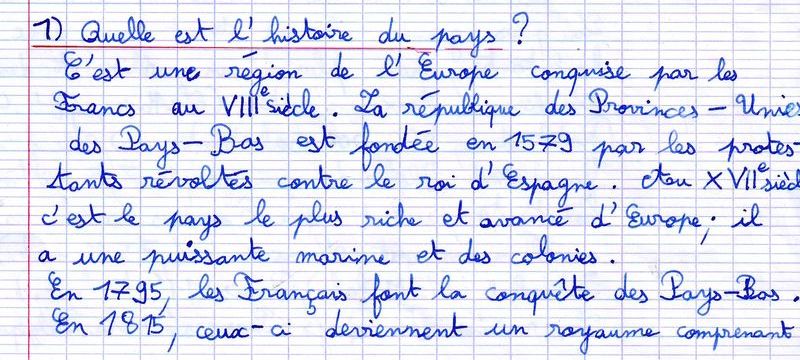 1) Quelle est l'histoire du pays ?
C'est une région de l'Europe conquise par les
Francs au VIIIe siècle. La république des Provinces-Unies
des Pays-Bas est fondée en 1579 par les protes-
tants révoltés contre le roi d'Espagne. Au XVIIe siècl
c'est le pays le plus riche et avancé d'Europe; il
a une puissante marine et des colonies.
En 1795, les Français font la conquête des Pays-Bas.
En 1815, ceux-ci deviennent un royaume comprenant